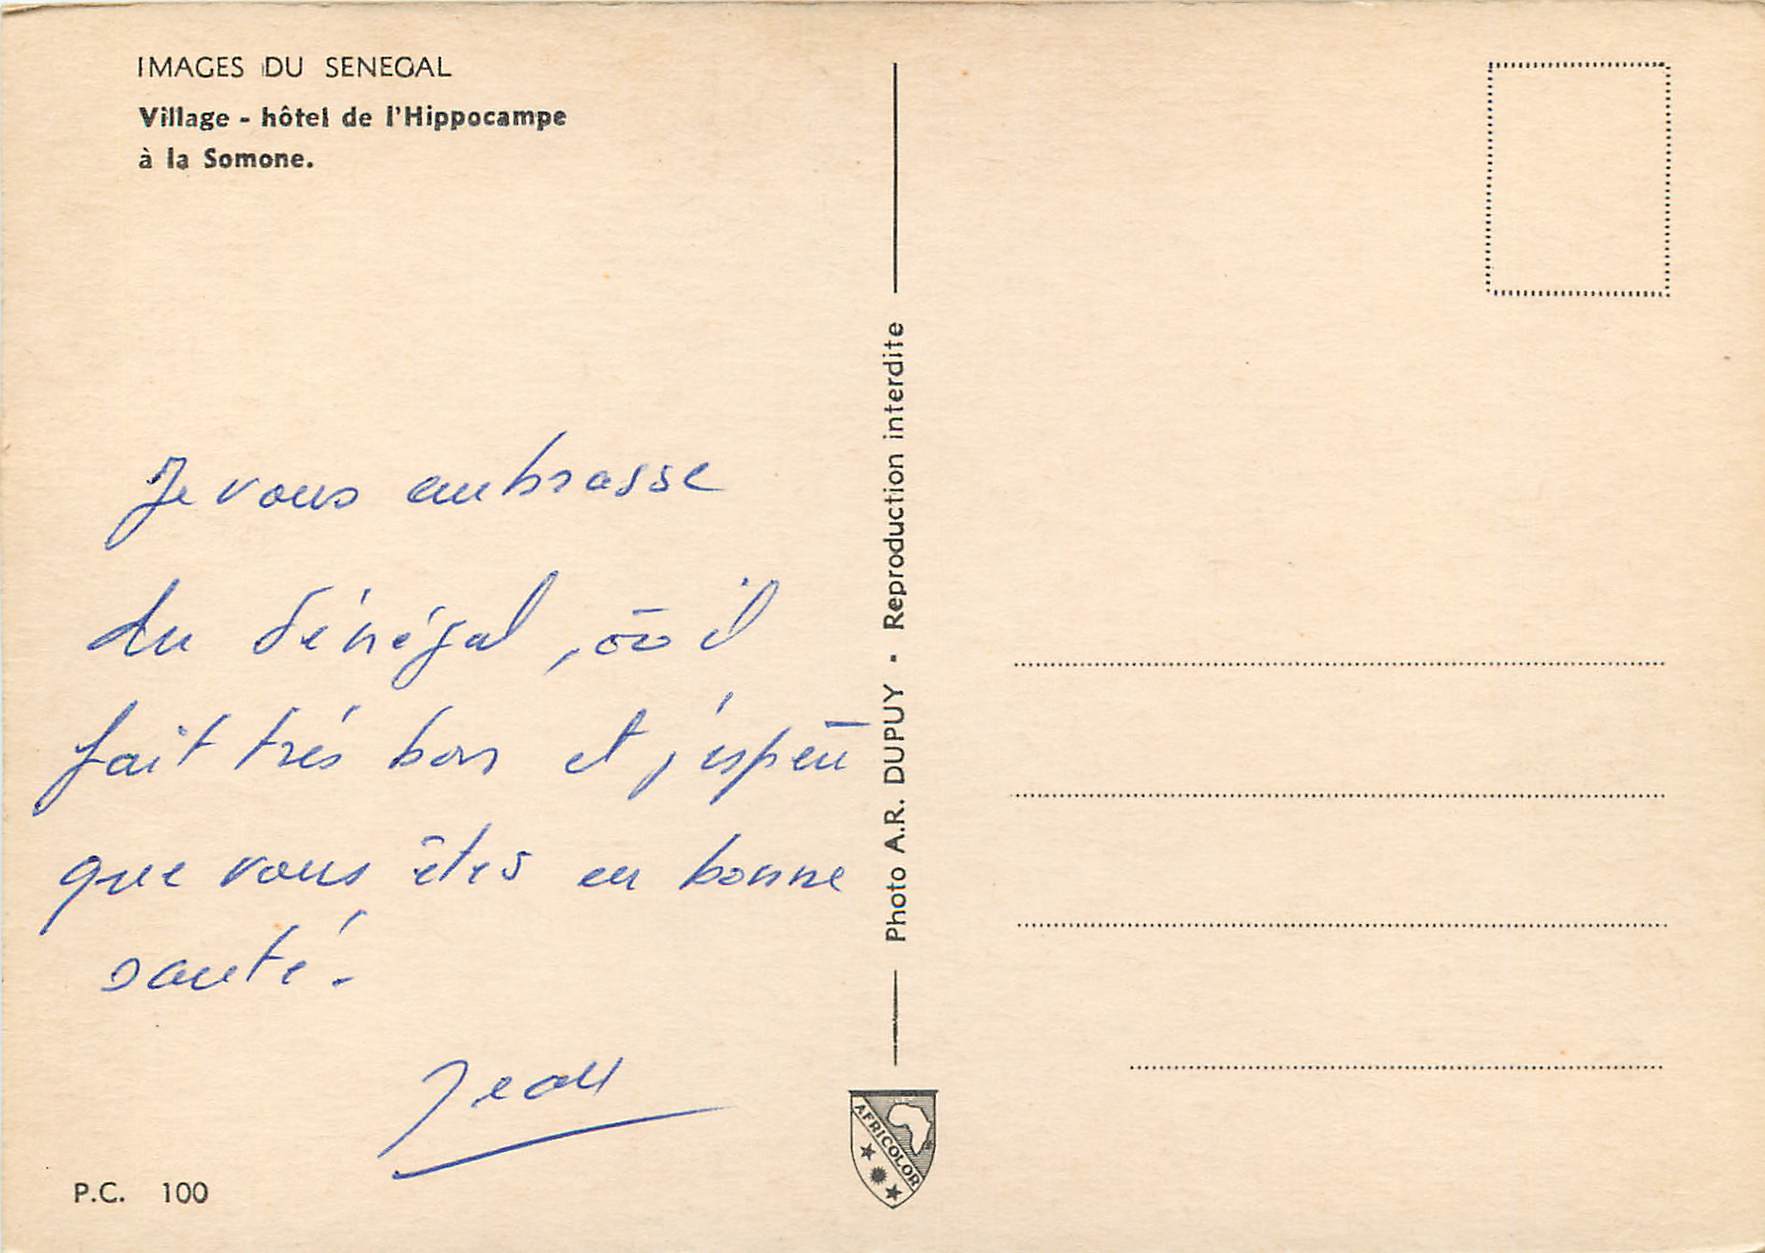 IMAGES DU SENEGAL
Village - hôtel de l'Hippocampe
à la Somone.
Je vous embrasse
du Sénégal, où il
fait très bon et j'espère
que vous êtes en bonne
santé.
Jean
P.C. 100
Photo A.R. DUPUY - Reproduction interdite
AFRICOLOR